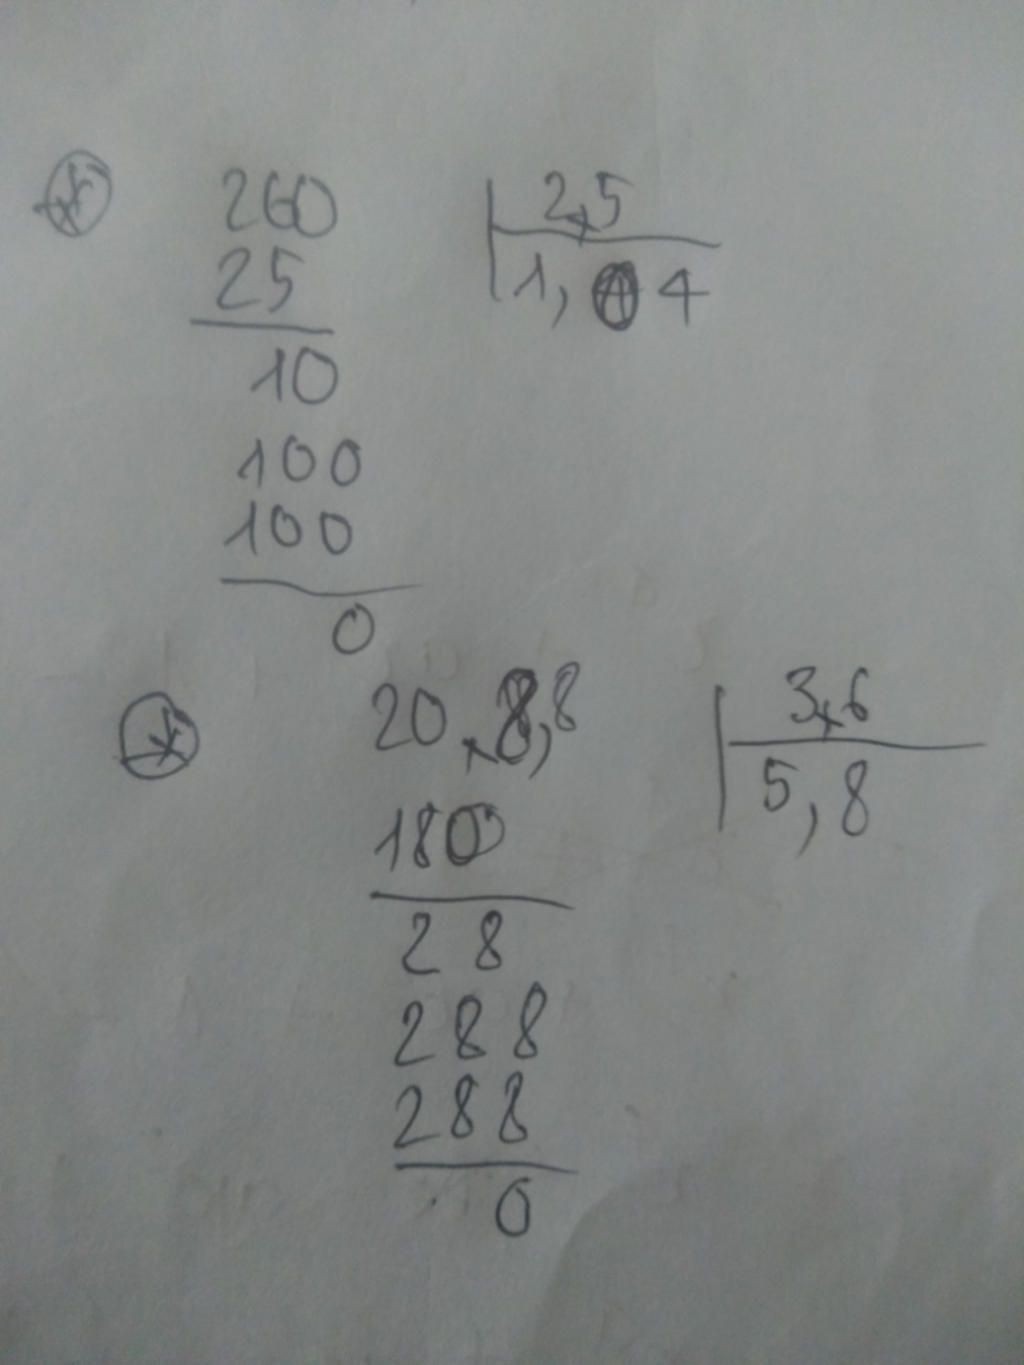 260 2,5
25 1, 4
10
100
100
0
20,8,8 3,6
180 5,8
28
288
288
0